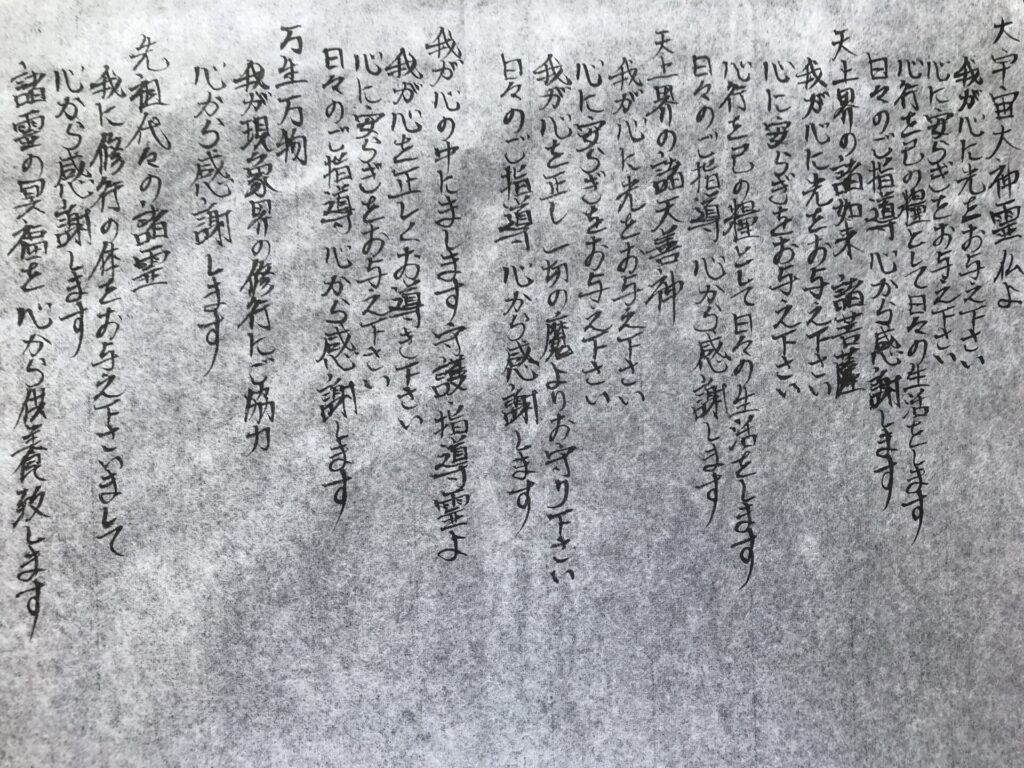 大宇宙大神霊仏よ
我が心に光をお与え下さい
心に安らぎをお与え下さい
心行を己の糧として日々の生活をします
日々のご指導 心から感謝します
天上界の諸如来 諸菩薩
我が心に光をお与え下さい
心に安らぎをお与え下さい
心行を己の糧として日々の生活をします
日々のご指導 心から感謝します
天上界の諸天善神
我が心に光をお与え下さい
心に安らぎをお与え下さい
我が心を正し 一切の魔よりお守り下さい
日々のご指導 心から感謝します
我が心の中にまします守護・指導霊よ
我が心を正しくお導き下さい
心に安らぎをお与え下さい
日々のご指導 心から感謝します
万生万物
我が現象界の修行にご協力
心から感謝します
先祖代々の諸霊
我に修行の体をお与え下さいまして
心から感謝します
諸霊の冥福を心から供養致します